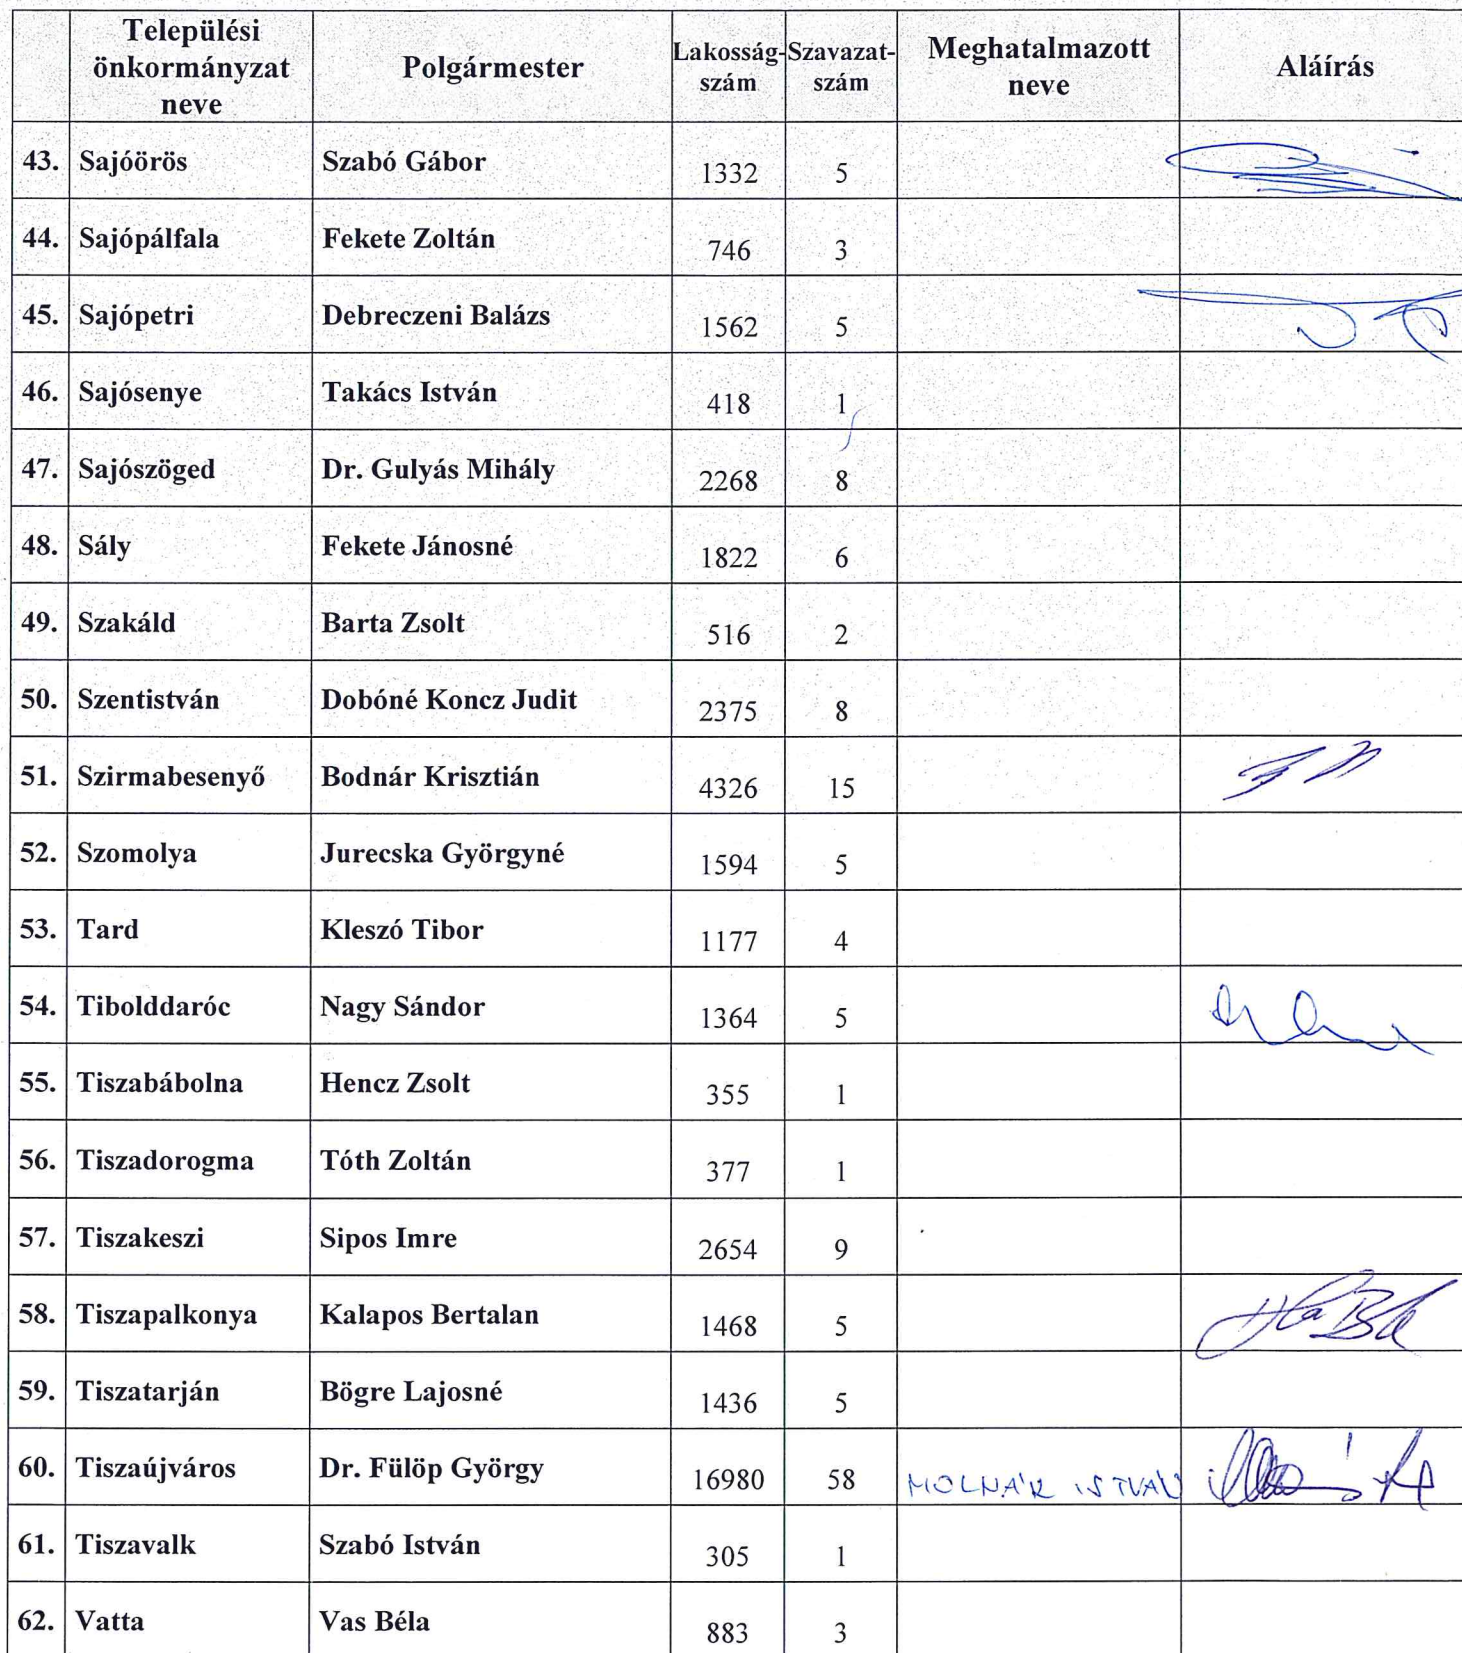 Települési önkormányzat neve Polgármester Lakosság-szám Szavazat-szám Meghatalmazott neve Aláírás
43. Sajóörös Szabó Gábor 1332 5
44. Sajópálfala Fekete Zoltán 746 3
45. Sajópetri Debreczeni Balázs 1562 5
46. Sajósenye Takács István 418 1
47. Sajószöged Dr. Gulyás Mihály 2268 8
48. Sály Fekete Jánosné 1822 6
49. Szakáld Barta Zsolt 516 2
50. Szentistván Dobóné Koncz Judit 2375 8
51. Szirmabesenyő Bodnár Krisztián 4326 15
52. Szomolya Jurecska Györgyné 1594 5
53. Tard Kleszó Tibor 1177 4
54. Tibolddaróc Nagy Sándor 1364 5
55. Tiszabábolna Hencz Zsolt 355 1
56. Tiszadorogma Tóth Zoltán 377 1
57. Tiszakeszi Sipos Imre 2654 9
58. Tiszapalkonya Kalapos Bertalan 1468 5
59. Tiszatarján Bögre Lajosné 1436 5
60. Tiszaújváros Dr. Fülöp György 16980 58 MOLNÁR ISTVÁN
61. Tiszavalk Szabó István 305 1
62. Vatta Vas Béla 883 3